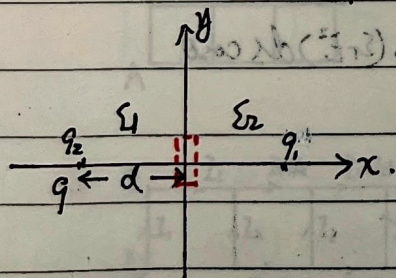 y
ε1 ε2
q2 q1 x.
q d